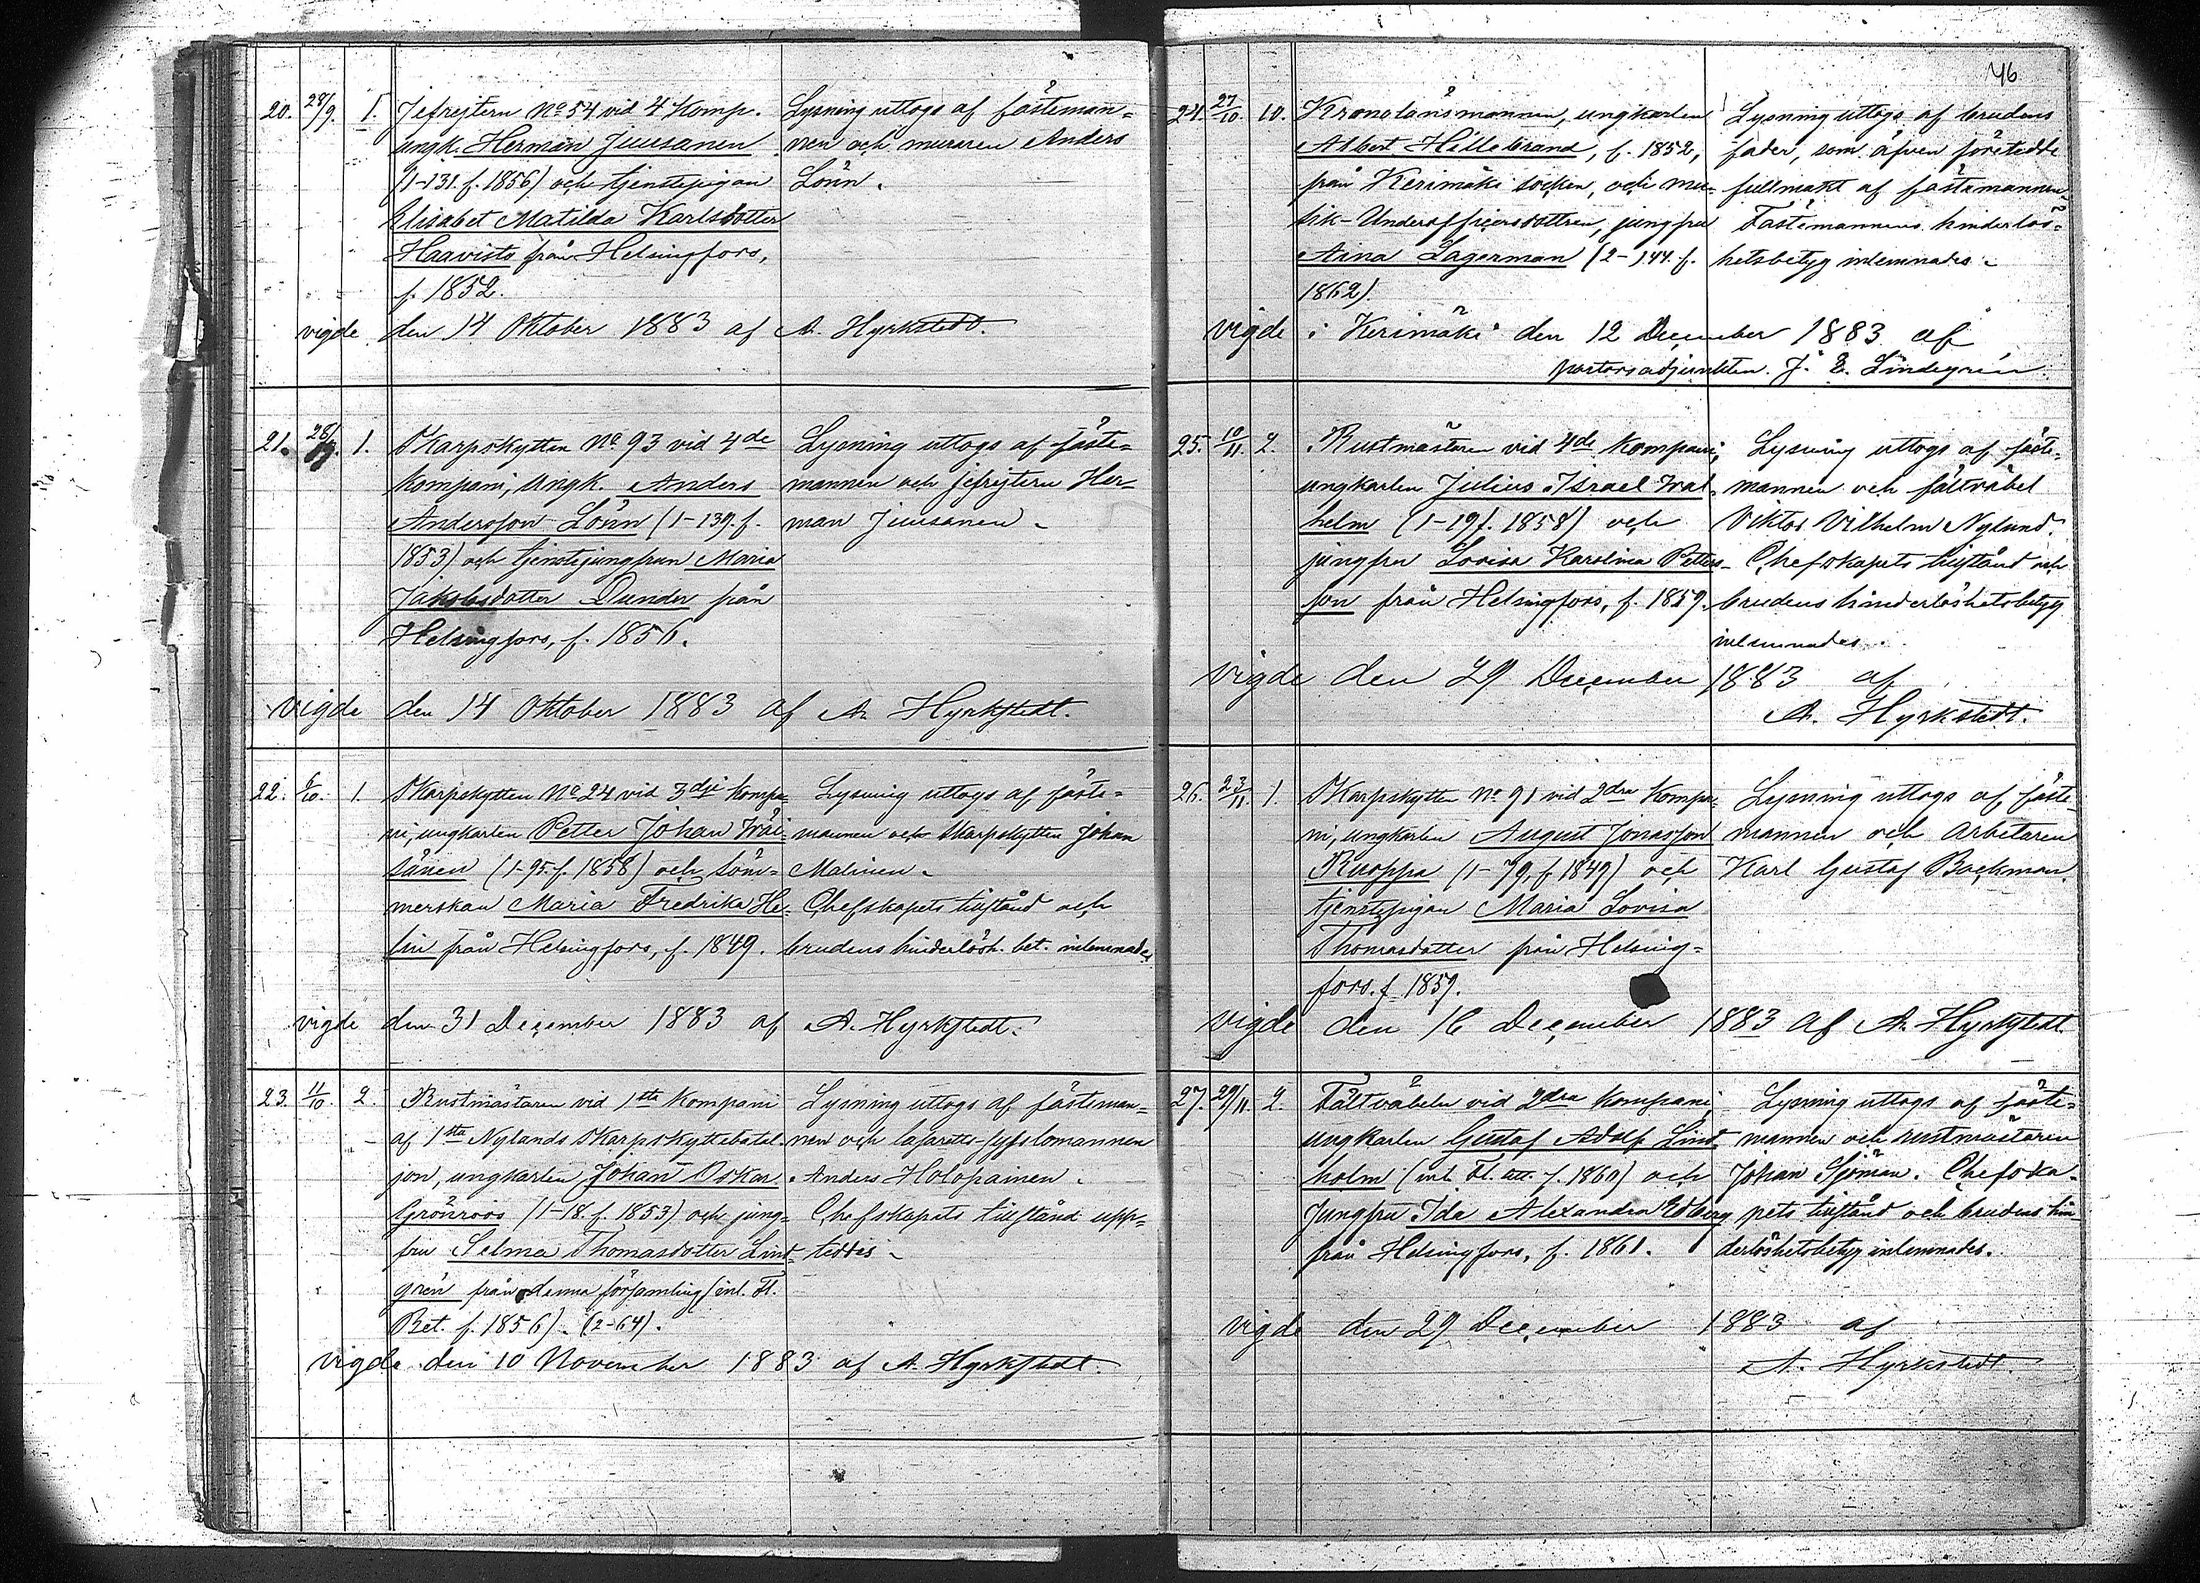 20. 28/9. 1. Jefrejtern No 54 vid 4 Komp.
ungk. Herman Juusanen
(1-131. f. 1856) och tjenstepigan
Elisabet Matilda Karlsdotter
Haavisto från Helsingfors,
f. 1852.
Lysning uttogs af fästeman-
nen och muraren Anders
Lönn.
vigde den 14 Oktober 1883 af A. Hyrkstedt.
21. 28/9. 1. Skarpskytten No 93 vid 4de
kompani, ungk. Anders
Andersson Lönn (1-139. f.
1853) och tjenstejungfrun Maria
Jakobsdotter Dunder från
Helsingfors, f. 1856.
Lysning uttogs af fäste-
mannen och jefrejtern Her-
man Juusanen.
vigde den 14 Oktober 1883 af A. Hyrkstedt.
22. 6/10. 1. Skarpskytten No 24 vid 3dje kompa-
ni, ungkarlen Petter Johan Wäi-
sänen (1-95. f. 1858) och söm-
merskan Maria Fredrika He-
lin från Helsingfors, f. 1849.
Lysning uttogs af fäste-
mannen och skarpskytten Johan
Malinen.
Chefskapets tillstånd och
brudens hinderlösh. bet. inlemnades
vigde den 31 December 1883 af A. Hyrkstedt.
23. 11/10. 2. Rustmästaren vid 1sta kompani
af 1sta Nylands Skarpskyttebatal-
jon, ungkarlen Johan Oskar
Grönroos (1-18. f. 1853) och jung-
fru Selma Thomasdotter Lind-
grén från denna församling (inl. Fl.
Bet. f. 1856). (2-64).
Lysning uttogs af fästeman-
nen och lasaretts-sysslomannen
Anders Holopainen.
Chefskapets tillstånd upp-
teddes.
vigde den 10 November 1883 af A. Hyrkstedt.
46
24. 27/10. 10. Kronolänsmannen, ungkarlen
Albert Hillebrand, f. 1852,
från Kerimäki socken, och mu-
sik-Underofficersdottren, jungfru
Aina Lagerman (2-144. f.
1862).
Lysning uttogs af brudens
fader, som äfven företedde
fullmakt af fästemannen.
Fästemannens hinderlös-
hetsbetyg inlemnades.
vigde i Kerimäki den 12 December 1883 af
pastorsadjunkten J. E. Lindegrén.
25. 10/11. 2. Rustmästaren vid 4de kompani,
ungkarlen Julius Israel Wal-
helm (1-19 f. 1858) och
jungfru Lovisa Karolina Petters-
son från Helsingfors, f. 1859.
Lysning uttogs af fäste-
mannen och fältväbel
Viktor Vilhelm Nylund.
Chefskapets tillstånd och
brudens hinderlöshetsbetyg
inlemnades.
vigde den 29 December 1883 af
A. Hyrkstedt.
26. 23/11. 1. Skarpskytten No 91 vid 2dra kompa-
ni, ungkarlen August Jonasson
Ruoppa (1-79, f. 1849) och
tjenstepigan Maria Lovisa
Thomasdotter från Helsing-
fors. f. 1859.
Lysning uttogs af fäste-
mannen och arbetaren
Karl Gustaf Backman.
vigde den 16 December 1883 af A. Hyrkstedt
27. 29/11. 2. Fältväbeln vid 2dra kompani
ungkarlen Gustaf Adolf Lind-
holm (inl. Fl. att. f. 1860) och
Jungfru Ida Alexandra Edberg
från Helsingfors, f. 1861.
Lysning uttogs af fäste-
mannen och rustmästaren
Johan Sjöman. Chefska-
pets tillstånd och brudens hin-
derlöshetsbetyg inlemnades.
vigde den 29 December 1883 af
A. Hyrkstedt.